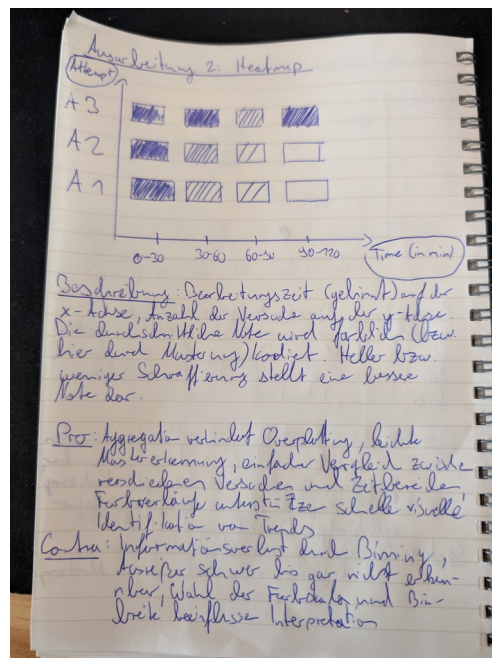 Ausarbeitung 2: Heatmap
Attempt
A 3
A 2
A 1
0-30 30-60 60-90 90-120 Time (in min)
Beschreibung: Bearbeitungszeit (gebinnt) auf der
x-Achse, Anzahl der Versuche auf der y-Achse.
Die durchschnittliche Note wird farblich (bzw.
hier durch Musterung) kodiert. Heller bzw.
weniger Schraffierung stellt eine bessere
Note dar.
Pro: Aggregation verhindert Overplotting, leichte
Mustererkennung, einfacher Vergleich zwischen
verschiedenen Versuchen und Zeitbereichen,
Farbverläufe unterstützen schnelle visuelle
Identifikation von Trends
Contra: Informationsverlust durch Binning,
Ausreißer schwer bis gar nicht erken-
nbar, Wahl der Farbskala und Bin-
breite beeinflusse Interpretation